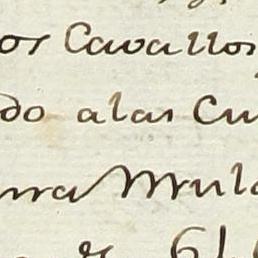 os Cavallos
do alas Cu
una Mula